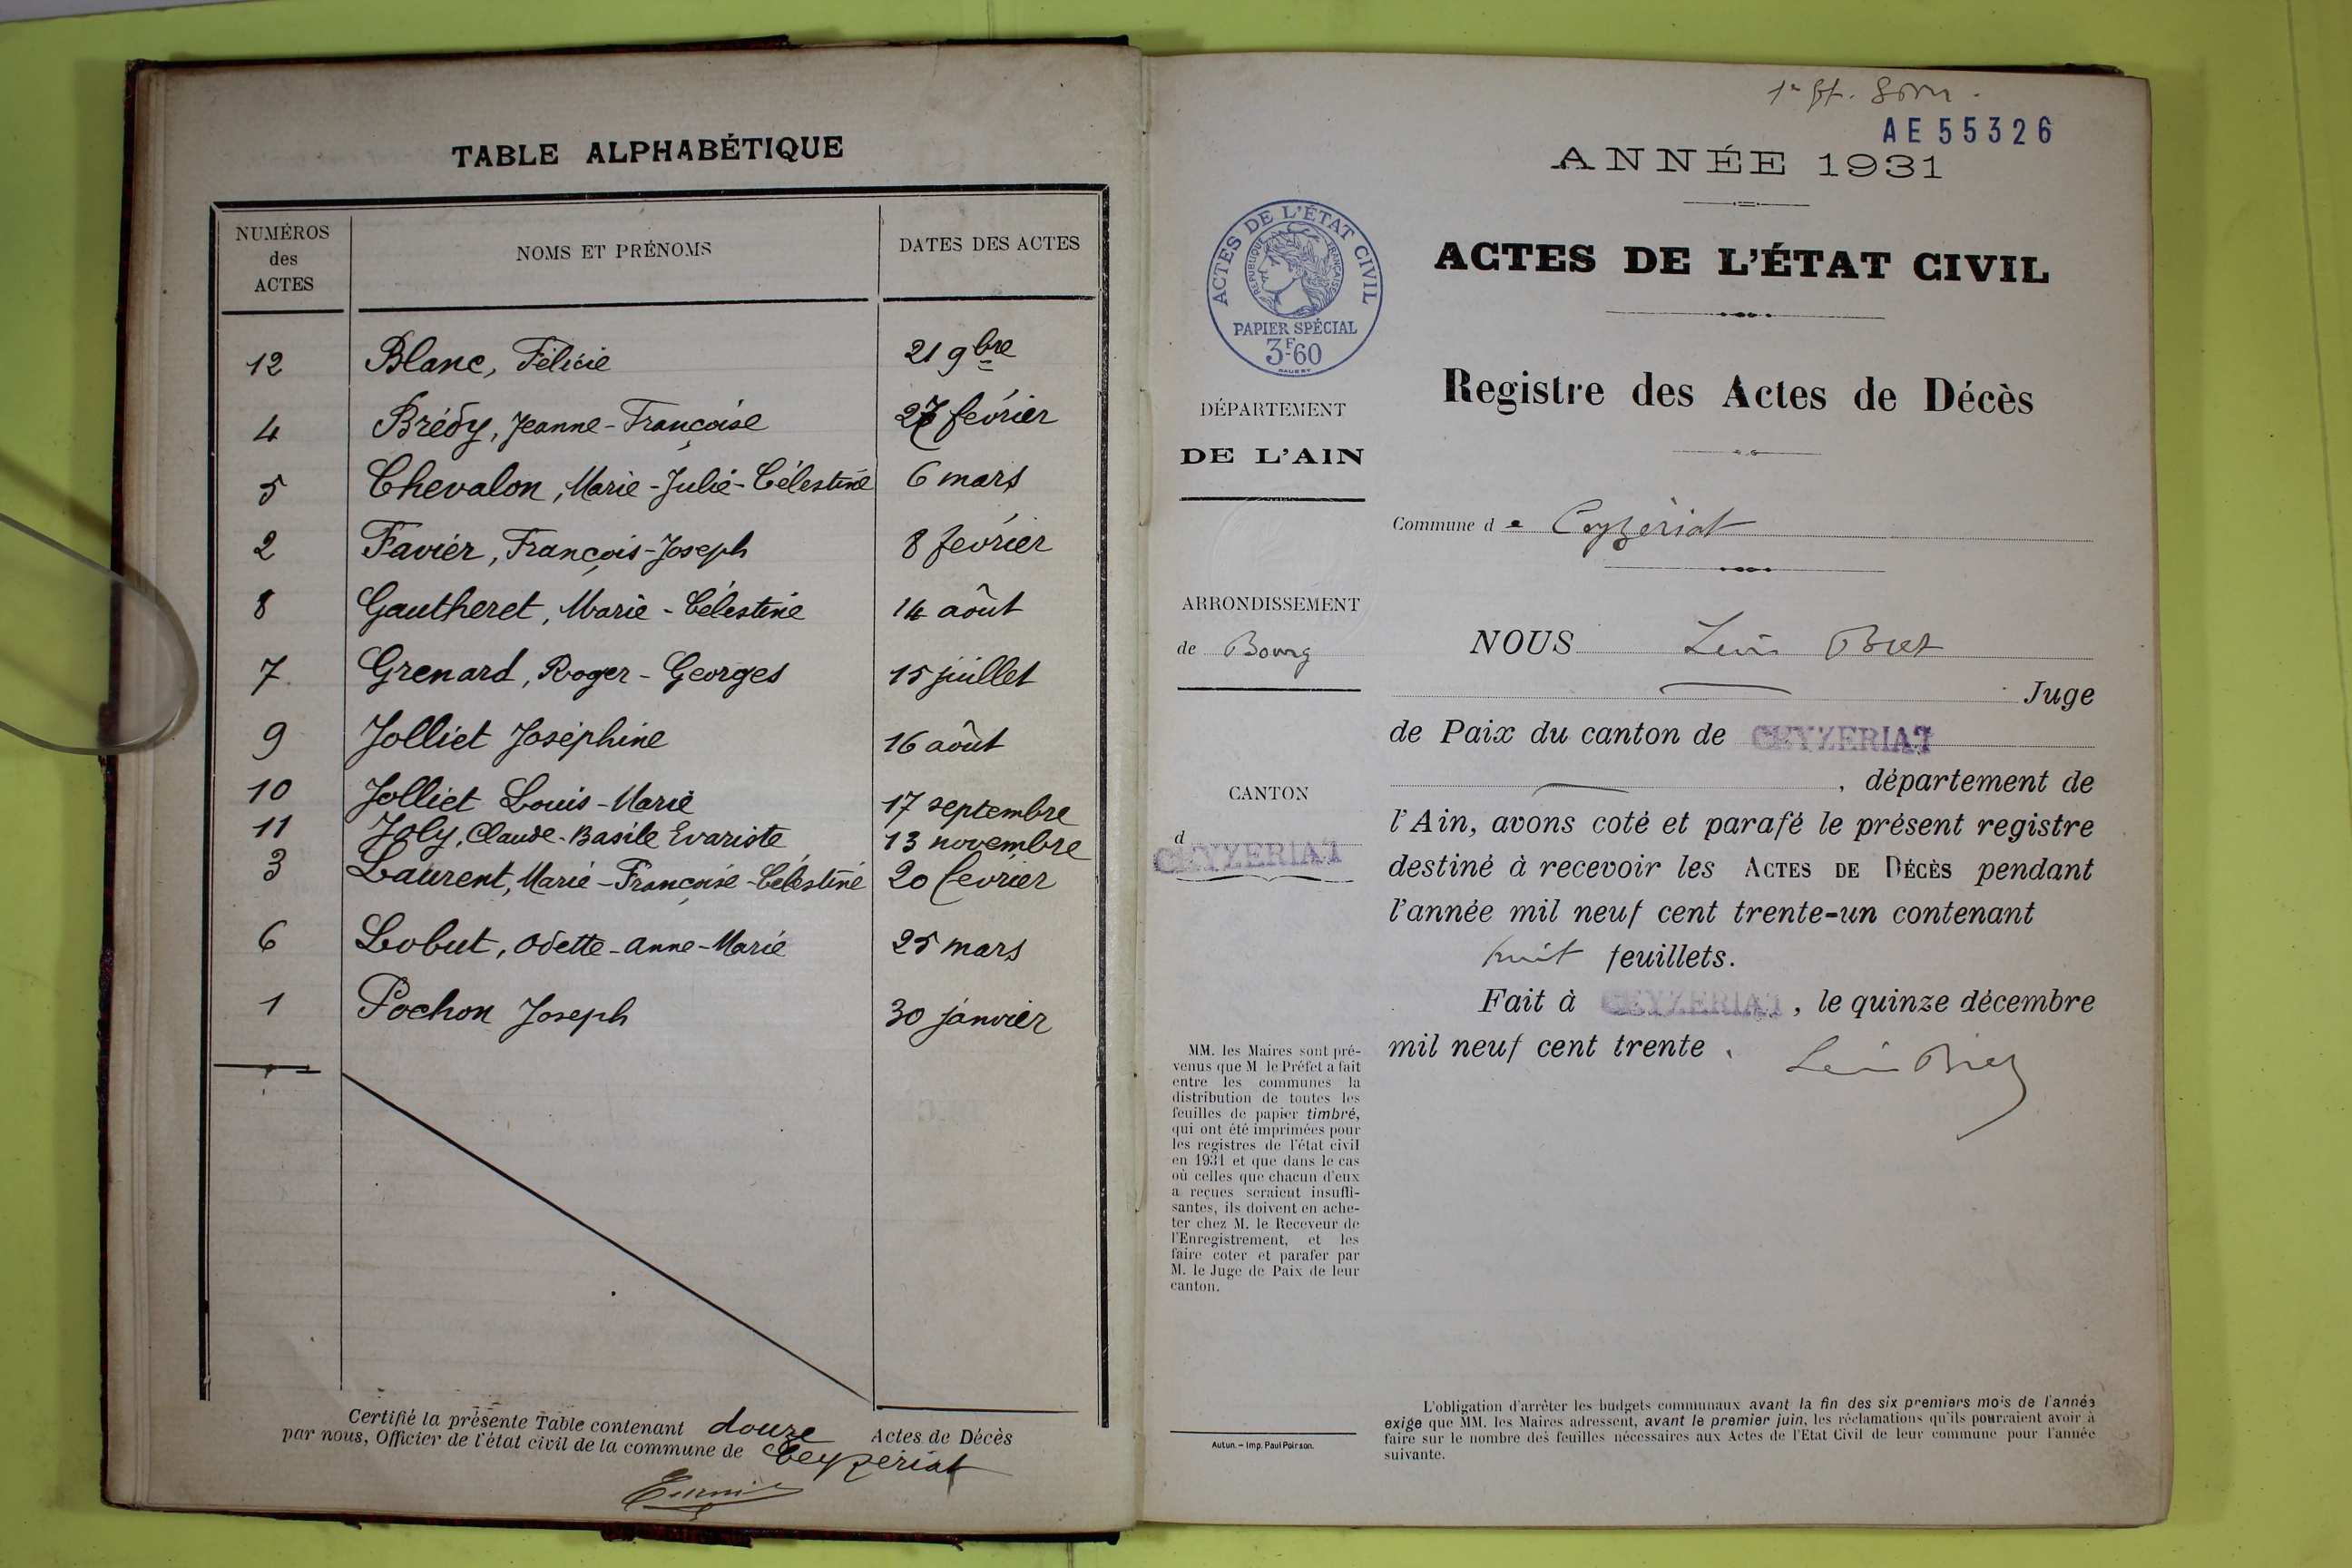 TABLE ALPHABÉTIQUE
NUMÉROS
des
ACTES
NOMS ET PRÉNOMS
DATES DES ACTES
12 Blanc, Félicie 21 9bre
4 Brédy, Jeanne-Françoise 27 février
5 Chevalon, Marie-Julie-Célestine 6 mars
2 Favier, François-Joseph 8 février
8 Gautheret, Marie-Célestine 14 août
7 Grenard, Roger-Georges 15 juillet
9 Jolliet Joséphine 16 août
10 Jolliet Louis-Marie 17 septembre
11 Joly, Claude-Basile Evariste 13 novembre
3 Laurent, Marie-Françoise-Célestine 20 février
6 Lobut, Odette-Anne-Marie 25 mars
1 Pochon Joseph 30 janvier
Certifié la présente Table contenant douze Actes de Décès
par nous, Officier de l'état civil de la commune de Ceyzériat
AE 55326
ANNÉE 1931
ACTES DE L'ÉTAT CIVIL
RÉPUBLIQUE FRANÇAISE
PAPIER SPÉCIAL
3F60
ACTES DE L'ÉTAT CIVIL
Registre des Actes de Décès
DÉPARTEMENT
DE L'AIN
Commune de Ceyzériat
ARRONDISSEMENT
de Bourg
NOUS
Juge
de Paix du canton de CEYZERIAT
, département de
CANTON
d
CEYZERIAT
l'Ain, avons coté et parafé le présent registre
destiné à recevoir les ACTES DE DÉCÈS pendant
l'année mil neuf cent trente-un contenant
huit feuillets.
Fait à CEYZERIAT, le quinze décembre
mil neuf cent trente.
MM. les Maires sont pré-
venus que M le Préfet a fait
entre les communes la
distribution de toutes les
feuilles de papier timbré,
qui ont été imprimées pour
les registres de l'état civil
en 1931 et que dans le cas
où celles que chacun d'eux
a reçues seraient insuffi-
santes, ils doivent en ache-
ter chez M. le Receveur de
l'Enregistrement, et les
faire coter et parafer par
M. le Juge de Paix de leur
canton.
Autun. – Imp. Paul Poirson.
L'obligation d'arrêter les budgets communaux avant la fin des six premiers mois de l'année
exige que MM. les Maires adressent, avant le premier juin, les réclamations qu'ils pourraient avoir à
faire sur le nombre des feuilles nécessaires aux Actes de l'Etat Civil de leur commune pour l'année
suivante.